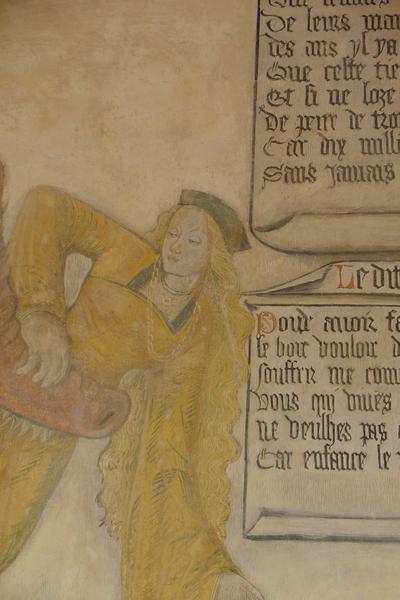 De leurs mau
des ans yl ya
Que ceste tie
Et si ne loze
De peur de tro
Car dix mill
Sans jamais
Le dit
Pour avoir fa
se voit vouloir d
souffrir me com
vous qui vives
ne veulhes pas
Car enfance le